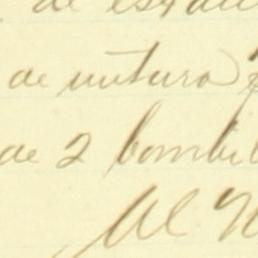 de
de untura
de 2 bombil
Al